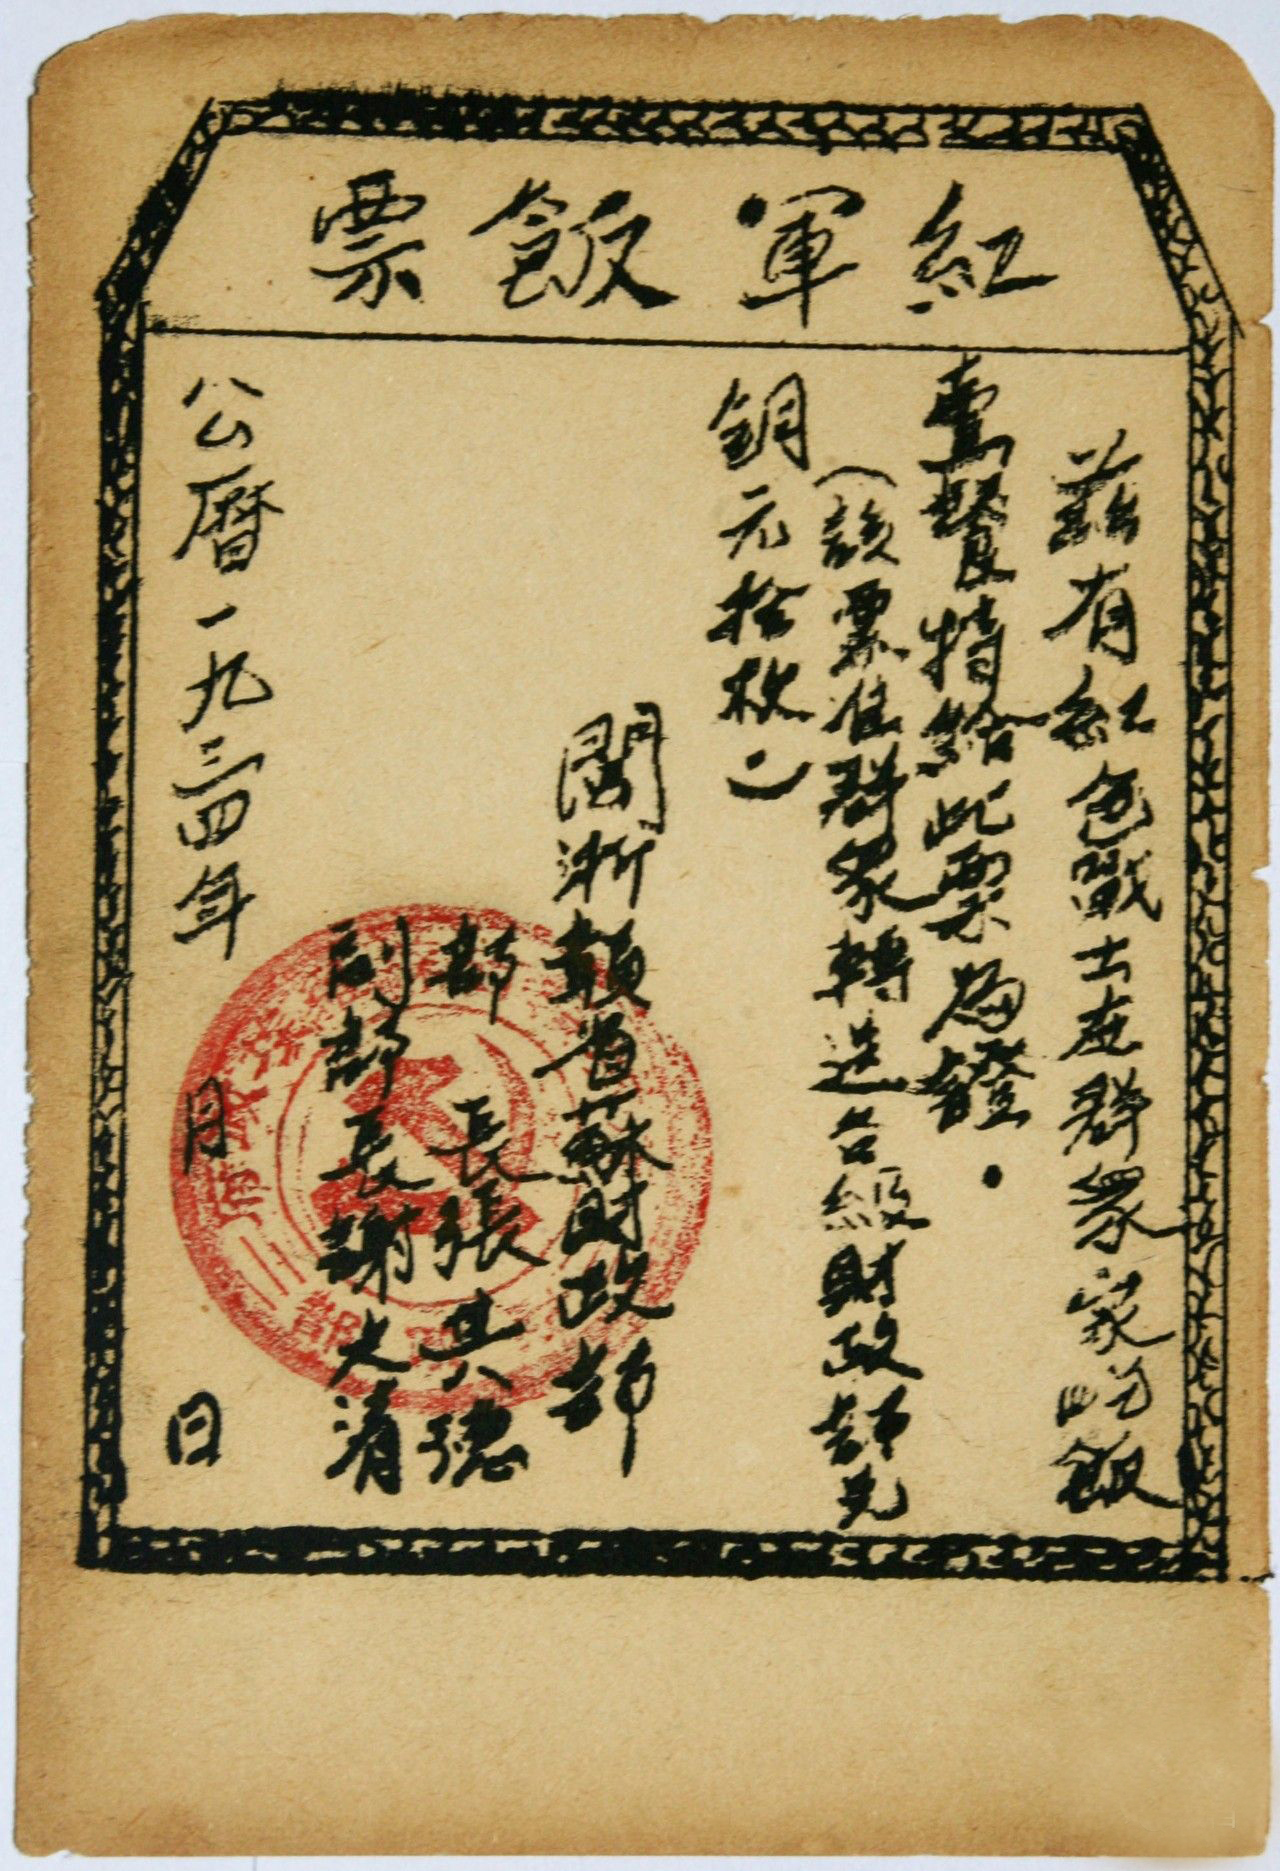 紅軍飯票
茲有紅色戰士在群眾家吃飯
壹餐特給此票為證.
(該票准群眾轉送各級財政部兌
銅元拾枚)
閩浙贛省蘇財政部
部長張其德
副部長謝文清
公曆一九三四年 月 日